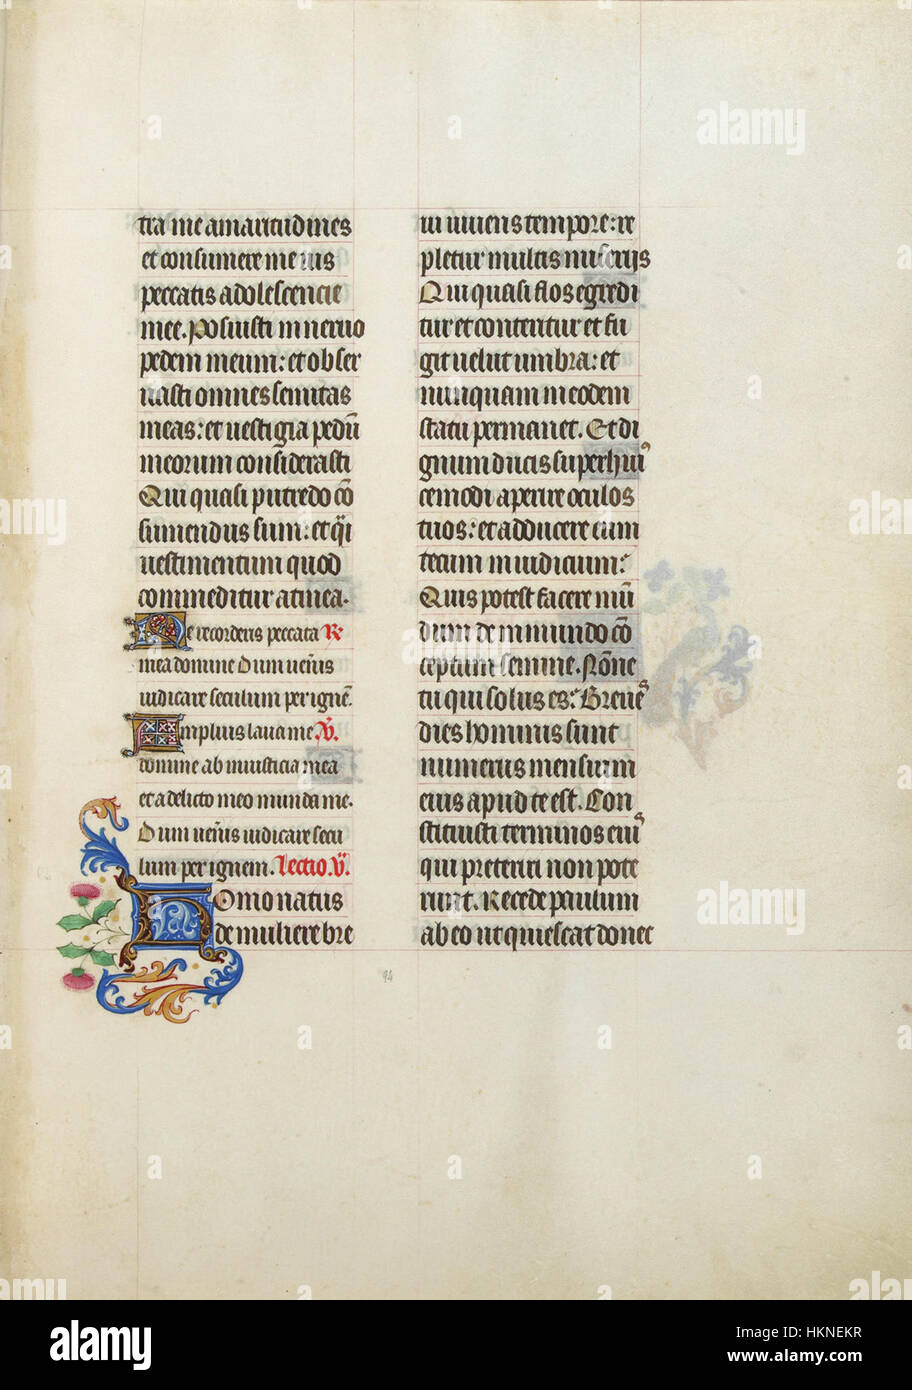 tra me amaritudines
et consumere me uis
peccatis adolescencie
mee. Posuisti in neruo
pedem meum: et obser
uasti omnes semitas
meas: et uestigia pedū
meorum considerasti
Qui quasi putredo cō
sumendus sum: et q̄si
uestimentum quod
commeditur a tinea.
Ne recorderis peccata R
mea domine Dum uen̄is
iudicare seculum per ignē.
Amplius laua me V.
domine ab iniusticia mea
et a delicto meo munda me.
Dum uen̄is iudicare secu
lum per ignem. Lectio. V.
Homo natus
de muliere bre
ui uiuens tempore: re
pletur multis miserijs
Qui quasi flos egredi
tur et conteritur et fu
git uelut umbra: et
nunquam in eodem
statu permanet. Et di
gnum ducis super huiꝰ
cemodi aperire oculos
tuos: et adducere eum
tecum in iudicium?
Quis potest facere mū
dum de inmundo cō
ceptum semine. Nōne
tu qui solus es? Breues
dies hominis sunt
numerus mensium
eius apud te est. Con
stituisti terminos eiuꝰ
qui preteriri non pote
runt. Recede paulum
ab eo ut quiescat donec
94
alamy
Image ID: HKNEKR
www.alamy.com